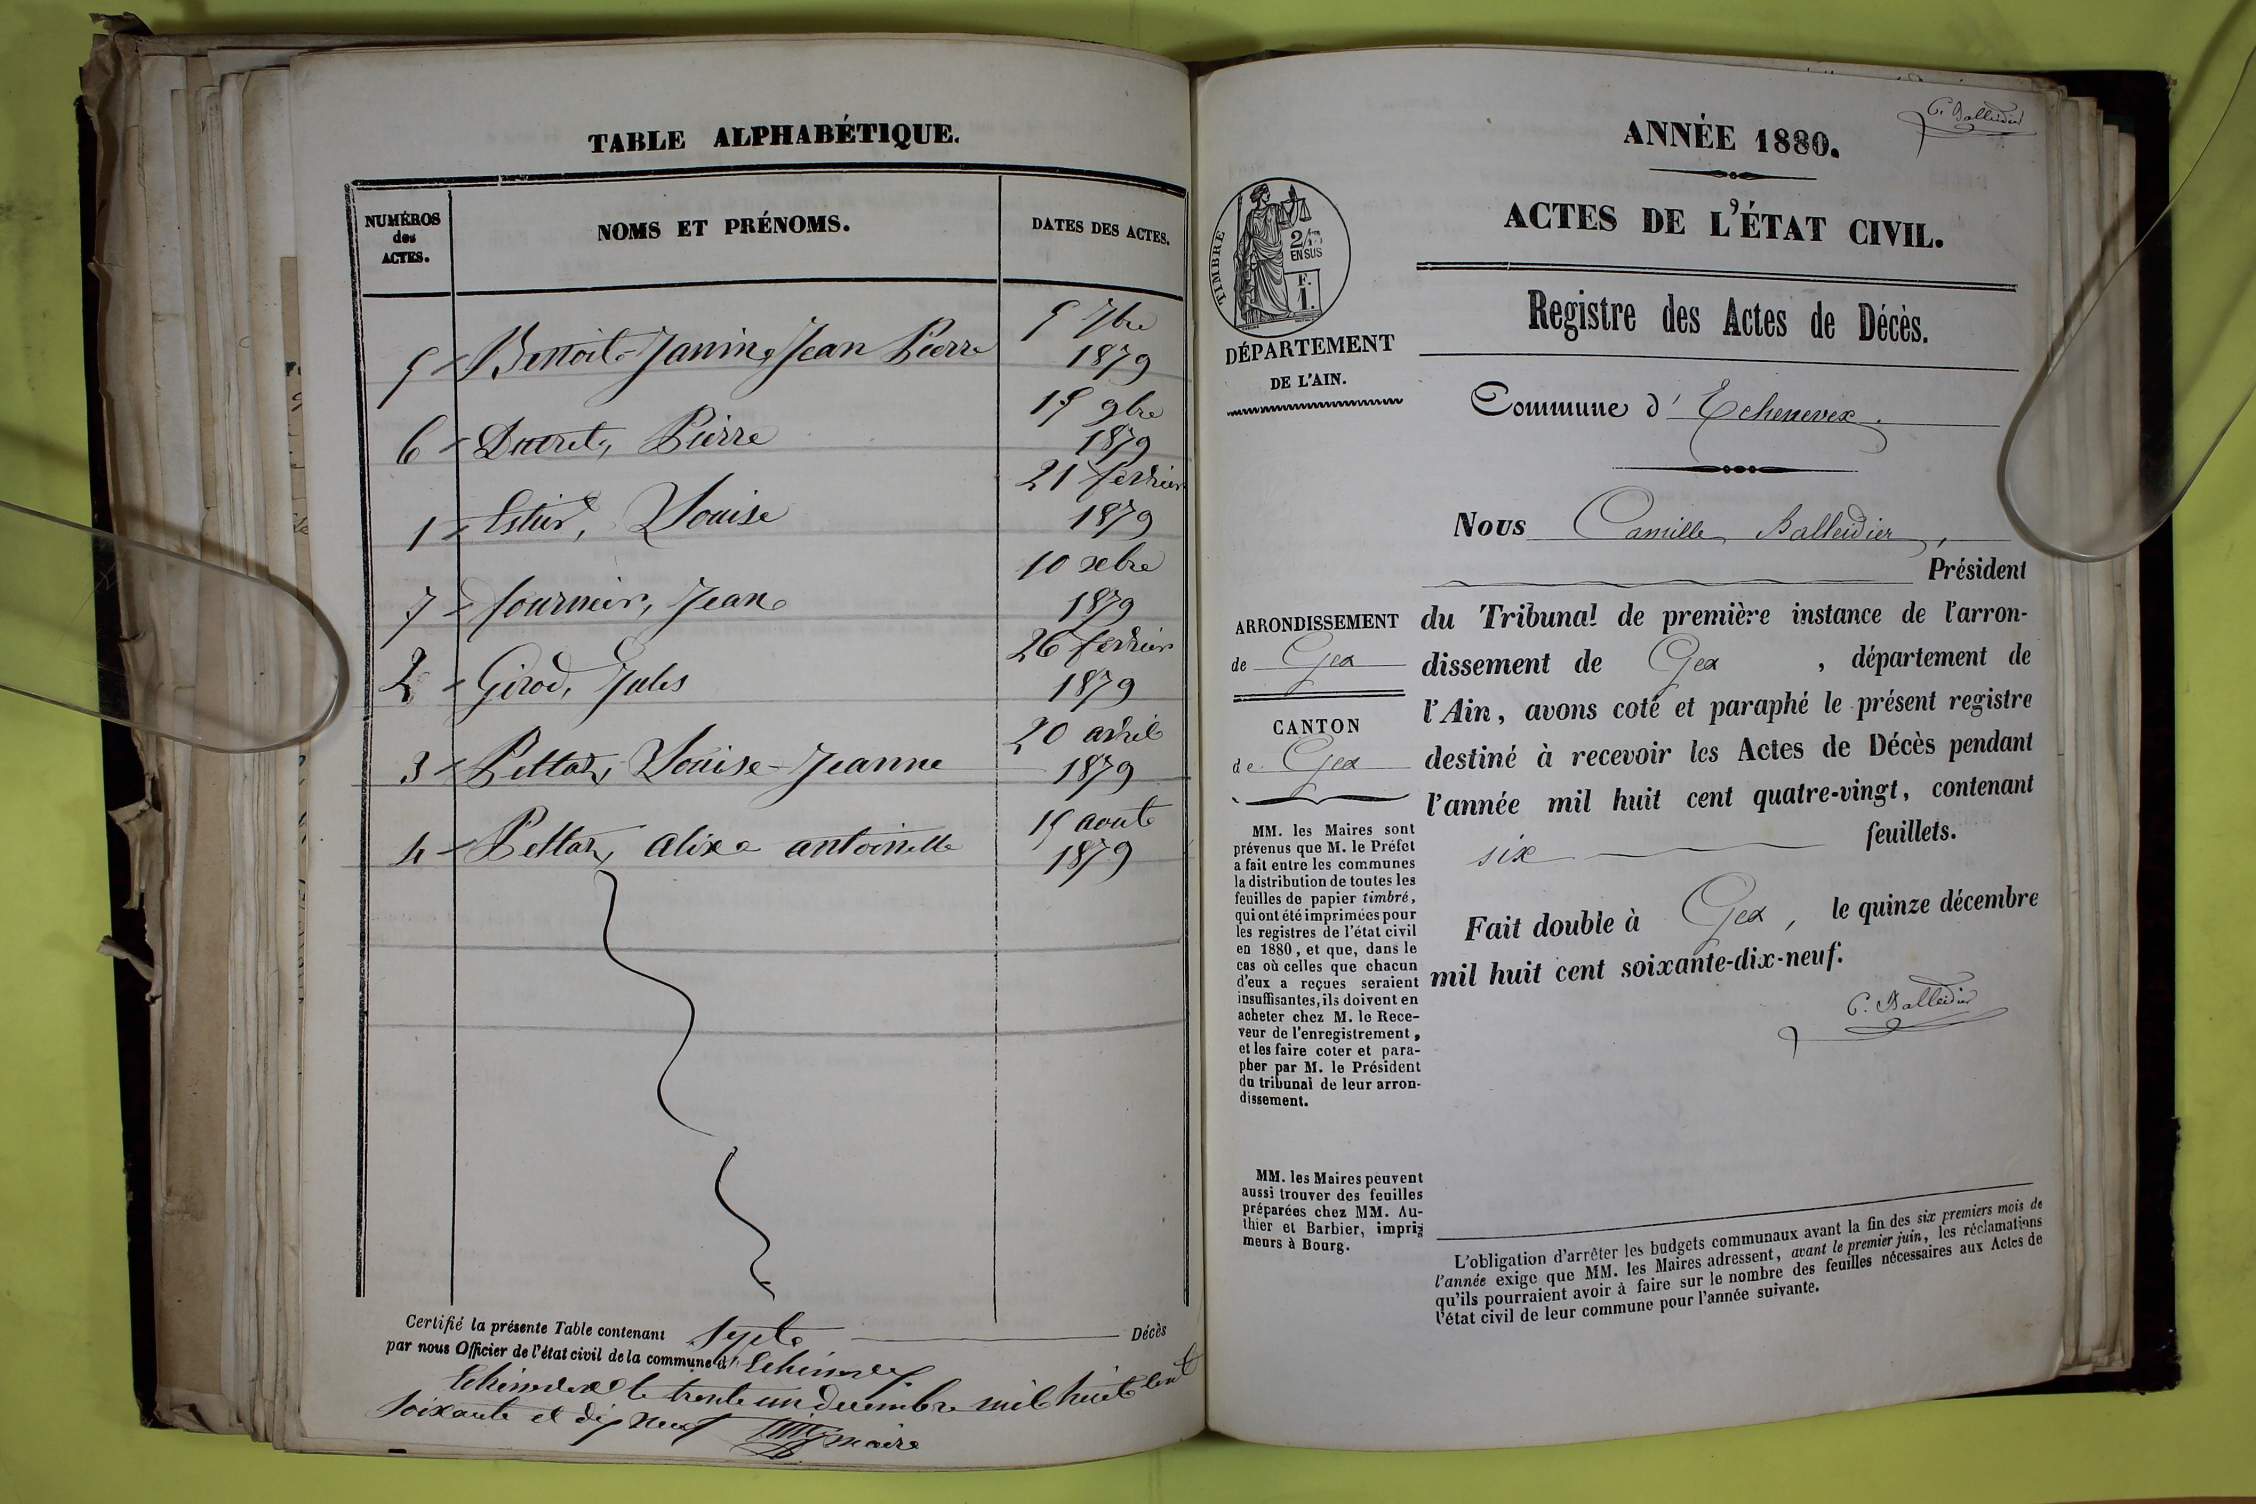 TABLE ALPHABÉTIQUE.
NUMÉROS
des
ACTES.
NOMS ET PRÉNOMS.
DATES DES ACTES.
5 Benoit-Janin, Jean Pierre 5 7bre
1879
6 Ducret, Pierre 15 9bre
1879
1 Louise 21 fevrier
1879
7 fournier, Jean 10 xbre
1879
2 Girod, Jules 26 fevrier
1879
3 Pelloz, Louise-Jeanne 20 avril
1879
4 Pelloz, alix antoinette 15 aout
1879
Certifié la présente Table contenant sept Décès
par nous Officier de l'état civil de la commune d' Echenevex
Echenevex le trente un decembre mil huit cent
soixante et dix neuf maire
C. Balleidier
ANNÉE 1880.
ACTES DE L'ÉTAT CIVIL.
TIMBRE
2/10
EN SUS
F.
1.
DÉPARTEMENT
DE L'AIN.
Registre des Actes de Décès.
Commune d' Echenevex.
Nous Camille Balleidier,
Président
du Tribunal de première instance de l'arron-
dissement de Gex, département de
l'Ain, avons coté et paraphé le présent registre
destiné à recevoir les Actes de Décès pendant
l'année mil huit cent quatre-vingt, contenant
six feuillets.
Fait double à Gex, le quinze décembre
mil huit cent soixante-dix-neuf.
C. Balleidier
ARRONDISSEMENT
de Gex
CANTON
de Gex
MM. les Maires sont
prévenus que M. le Préfet
a fait entre les communes
la distribution de toutes les
feuilles de papier timbré,
qui ont été imprimées pour
les registres de l'état civil
en 1880, et que, dans le
cas où celles que chacun
d'eux a reçues seraient
insuffisantes, ils doivent en
acheter chez M. le Rece-
veur de l'enregistrement,
et les faire coter et para-
pher par M. le Président
du tribunal de leur arron-
dissement.
MM. les Maires peuvent
aussi trouver des feuilles
préparées chez MM. Au-
thier et Barbier, impri-
meurs à Bourg.
L'obligation d'arrêter les budgets communaux avant la fin des six premiers mois de
l'année exige que MM. les Maires adressent, avant le premier juin, les réclamations
qu'ils pourraient avoir à faire sur le nombre des feuilles nécessaires aux Actes de
l'état civil de leur commune pour l'année suivante.